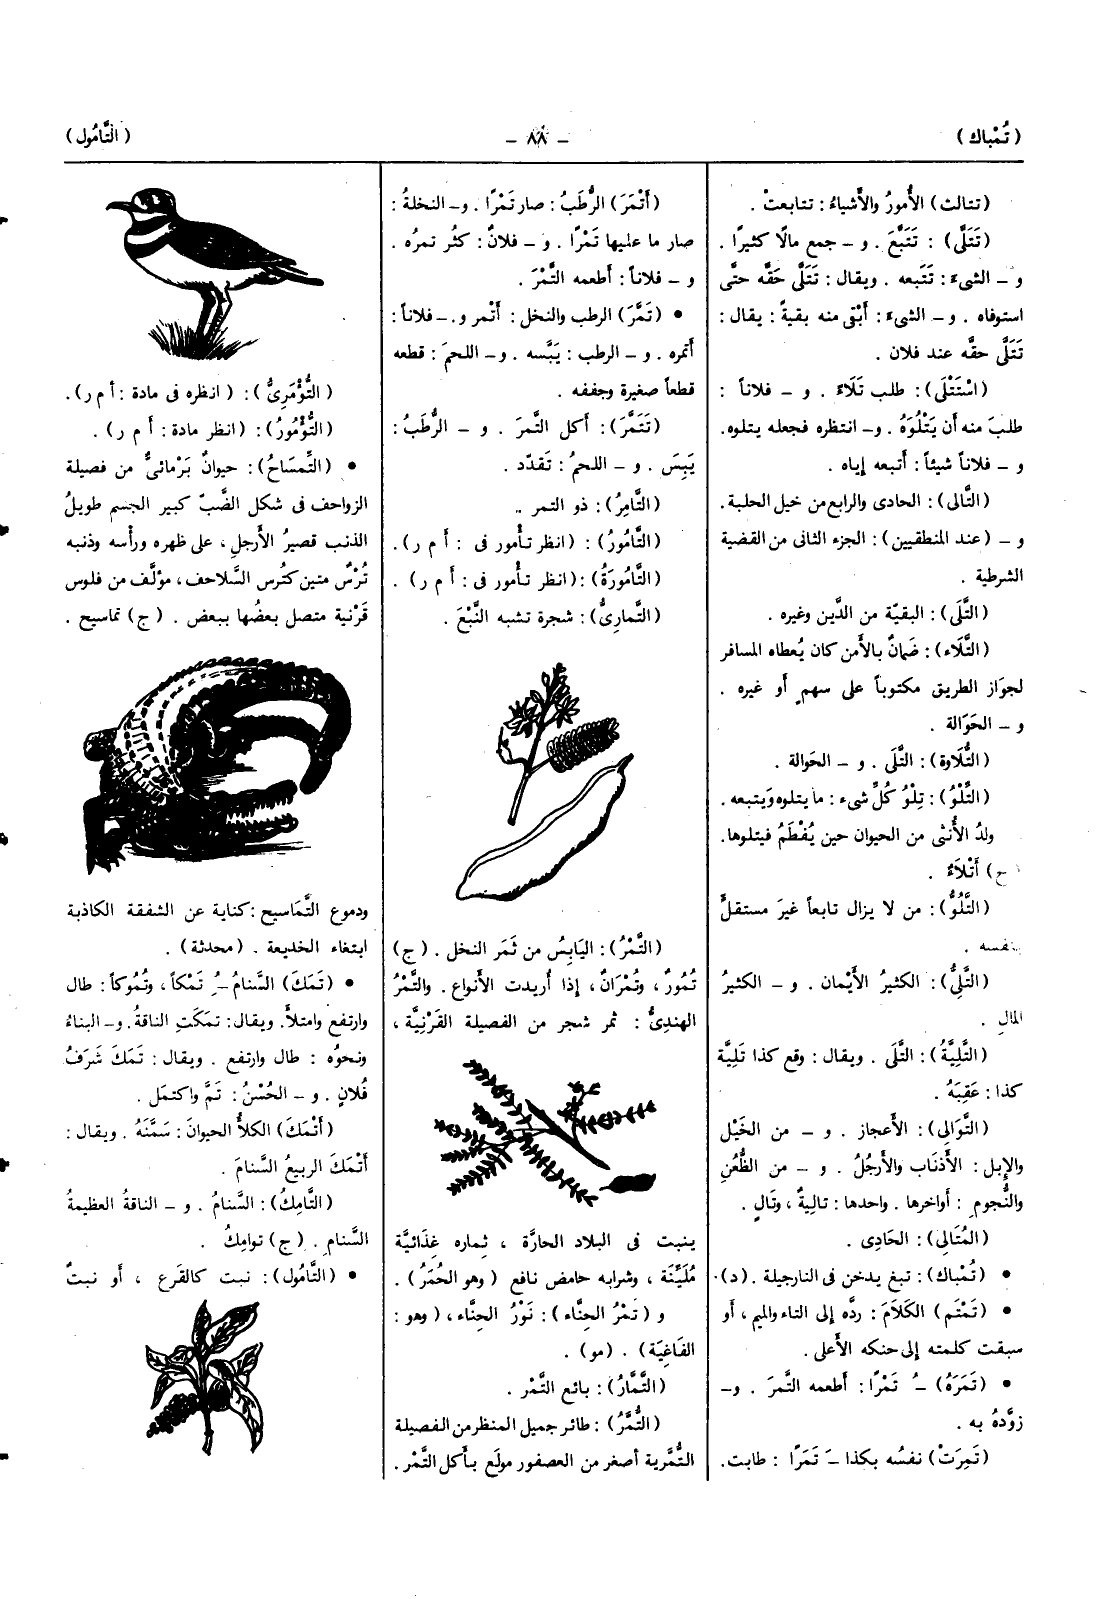 ( تُمْباك )
– ٨٨ –
( التَّامُول )
(تتالت) الأُمورُ والأَشياءُ : تتابعتْ .
(تَتَلَّى) : تَتَبَّعَ . و – جمع مالًا كثيرًا .
و – الشىءَ : تَتَبعه . ويقال : تَتَلَّى حَقَّه حتَّى
استوفاه . و – الشىءَ : أَبْقَى منه بقيةً : يقال :
تَتَلَّى حقَّه عند فلان .
(اسْتَتْلَى) : طلب تَلَاءً . و – فلاناً :
طلبَ منه أَن يَتْلُوَهُ . و – انتظره فجعله يتلوه.
و – فلاناً شيئاً : أَتبعه إياه .
(التَّالى) : الحادى والرابع من خيل الحلبة .
و – (عند المنطقيين) : الجزء الثانى من القضية
الشرطية .
(التَّلَى) : البقيّة من الدَّين وغيره .
(التَّلَاء) : ضَمانٌ بالأَمن كان يُعطاه المسافر
لجوَاز الطريق مكتوباً على سهمٍ أَو غيره .
و – الحَوَالة .
(التُّلَاوة) : التَّلَى . و – الحَوالة .
(التِّلْوُ) : تِلْوُ كُلِّ شىء : ما يتلوه ويَتبعه .
ولدُ الأُنثَى من الحيوان حين يُفْطَمُ فيتلوها.
ج) أَتْلَاءٌ .
(التَّلُوُّ) : من لا يزال تابعاً غيرَ مستقلٍّ
بنفسه .
(التَّلِىُّ) : الكثيرُ الأَيْمان . و – الكثيرُ
المالِ .
(التَّلِيَّةُ) : التَّلَى . ويقال : وقع كذا تَلِيَّةَ
كذا : عَقِبَهُ .
(التَّوَالِى) : الأَعجاز . و – من الخَيْل
والإِبل : الأَذنَاب والأَرجُلُ . و – من الظُّعُنِ
والنُّجومِ : أَواخرها . واحدها : تاليةٌ ، وتَالٍ .
(المُتَالِى) : الحَادِى .
• (تُمْباك) : تبغ يدخن فى النارجيلة . (د) .
• (تَمْتَم) الكَلَامَ : ردَّه إلى التاء والميم ، أَو
سبقت كلمته إلى حنكه الأَعلى .
• (تَمَرَهُ) –ُ تَمْرًا : أَطعمه التَّمرَ . و–
زوَّدهُ به .
(تَمِرَتْ) نفسُه بكذا –َ تَمَرًا : طابت .
(أَتْمَرَ) الرُّطَبُ : صار تَمْرًا . و– النخلةُ :
صار ما عليها تَمْرًا . و – فلانٌ : كثُر تمرُه .
و – فلاناً : أَطعمه التَّمْرَ .
• (تَمَّرَ) الرطب والنخل : أَتْمر و. – فلاناً :
أَتمره . و – الرطب : يَبَّسه . و – اللحمَ : قطعه
قطعاً صغيرة وجففه .
(تَتَمَّرَ) : أَكل التَّمرَ . و – الرطَبُ :
يَبِسَ . و – اللحمُ : تَقدّد .
(التَّامِرُ) : ذو التمر .
(التَّامُورُ) : (انظر تأْمور فى : أَ م ر) .
(التَّامُورَةُ) : (انظر تأْمور فى : أَ م ر) .
(التَّمارِىُّ) : شجرة تشبه النَّبْعَ .
(التَّمْرُ) : اليَابِسُ من ثَمَر النخل . (ج)
تُمُورٌ ، وتُمْرَانٌ ، إِذا أُريدت الأَنواع . والتَّمْرُ
الهندِىُّ : ثمر شجر من الفصيلة القَرْنِيَّة ،
ينبت فى البلاد الحارَّة ، ثِماره غِذَائيَّة
مُلَيِّنَة ، وشرابه حامض نافع ( وهو الحُمَرُ ) .
و ( تَمْرُ الحِنَّاء ) : نَوْرُ الحِنَّاء ، ( وهو :
الفَاغِيَة ) . (مو) .
(التَّمَّارُ) : بائع التَّمْر .
(التُّمَّرُ) : طائر جميل المنظر من الفصيلة
التُّمَّرية أَصغر من العصفور مولَع بأَكل التَّمْر .
(التُّؤْمَرِىُّ) : ( انظره فى مادة : أَ م ر ) .
(التُّؤْمُورُ) : ( انظر مادة : أَ م ر ) .
• (التِّمسَاحُ) : حيوانٌ بَرْمائىٌّ من فصيلة
الزواحف فى شكل الضَّبّ كبير الجسم طويلُ
الذنب قصيرُ الأَرجل ، على ظهره ورأْسه وذنبه
تُرْسٌ متين كتُرس السَّلاحف ، مؤلَّف من فلوس
قَرْنية متصل بعضُها ببعض . ( ج ) تماسيح .
ودموع التَّماسيح : كناية عن الشفقة الكاذبة
ابتغاء الخديعة . ( محدثة ) .
• (تَمَكَ) السَّنامُ –ُ تَمْكاً ، وتُمُوكاً : طال
وارتفع وامتلأَ. ويقال : تمَكَتِ الناقةُ . و– البناءُ
ونحوُه : طال وارتفع . ويقال : تَمَكَ شَرَفُ
فُلانٍ . و – الحُسْنُ : تَمَّ واكتمَل .
(أَتْمَكَ) الكلأُ الحيوانَ : سَمَّنَهُ . ويقال :
أَتْمَكَ الربيعُ السَّنامَ .
(التَّامِكُ) : السَّنامُ . و – الناقةُ العظيمةُ
السَّنام . (ج) توامِكُ .
• (التَّامُول) : نبت كالقَرع ، أَو نبتٌ